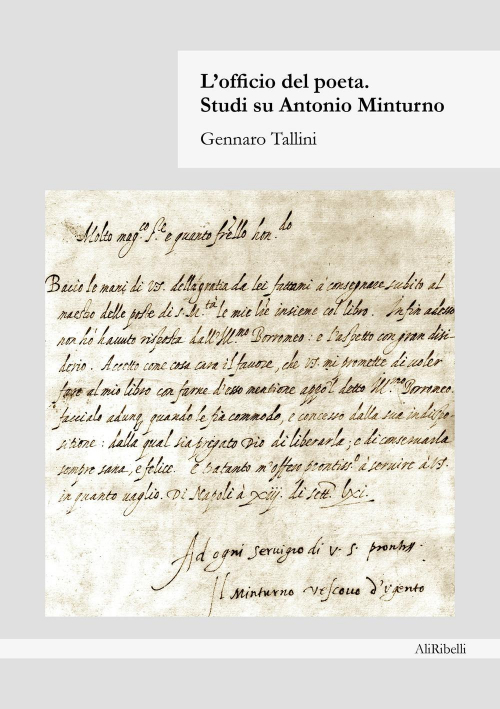 L'officio del poeta.
Studi su Antonio Minturno
Gennaro Tallini
Molto mag.co s.re e quanto fr̃ello hon.do
Bacio le mani di V.S. della gratia da lei fattami à consegnare subito al
maestro delle poste di S.M.tà le mie lr̃e insieme col libro. Infin adesso
non hò havuto risposta dall'Ill.mo Borromeo: e l'aspetto con gran disi-
derio. Accetto come cosa cara il favore, che V.S. mi promette di voler
fare al mio libro con farne d'esso mentione appo'l detto Ill.mo Borromeo.
faccialo adunq, quando le fia commodo, e concesso dalla sua indispo-
sitione: dalla qual sia pregato Dio di liberarla; e di conservarla
sempre sana, e felice. E tratanto m'offero prontiss.o à servire à V.S.
in quanto vaglio. Di Napoli à xiij. di sett. lxi.
Ad ogni servigio di V.S. prontiss.
Il Minturno Vescovo d'Ugento
AliRibelli